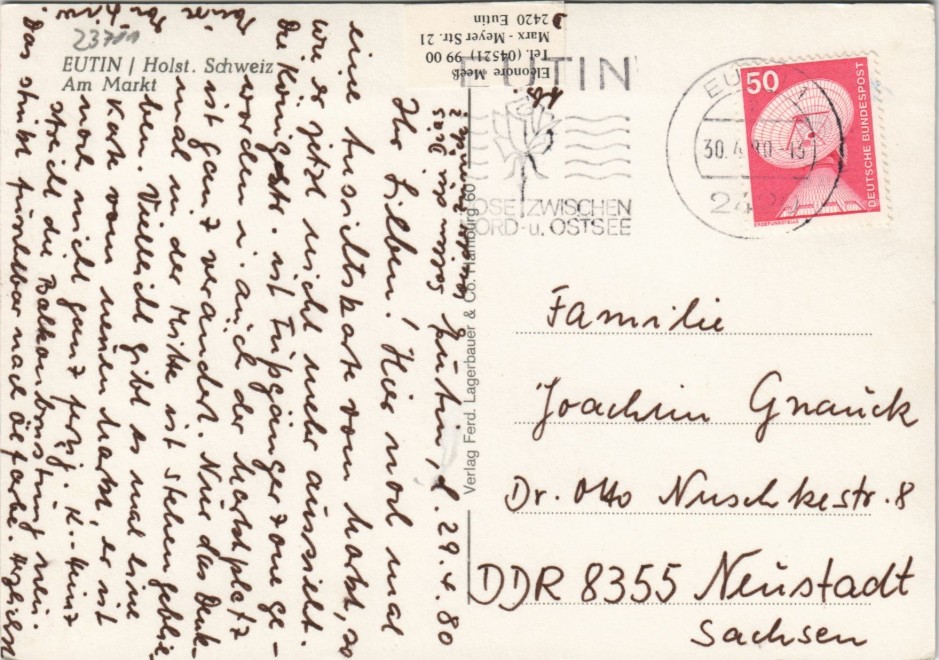 23701
EUTIN / Holst. Schweiz
Am Markt
Eleonore Meeß
Tel. (04521) 99 00
Marx - Meyer Str. 21
2420 Eutin
EUTIN
ROSE ZWISCHEN
NORD- u. OSTSEE
30.4.80-13
242
50
DEUTSCHE BUNDESPOST
Verlag Ferd. Lagerbauer & Co. Hamburg 60
Eutin, d. 29.4.80
Ihr Lieben! Hier noch mal
eine Ansichtskarte vom Markt, so
wie er jetzt nicht mehr aussieht.
Die Königstr. ist Fußgänger zone ge-
worden u. auch der Marktplatz
ist ganz verändert. Nur das Denk-
mal in der Mitte ist stehen geblie-
ben. Vielleicht gibt es mal eine
Karte vom neuen Markt, er ist
noch nicht ganz fertig. K.-Heinz
streicht die Balkonbrüstung neu.
Das stinkt furchtbar nach Ölfarbe. Herzliche
Familie
Joachim Gnauck
Dr. Otto Nuschkestr. 8
DDR 8355 Neustadt
Sachsen